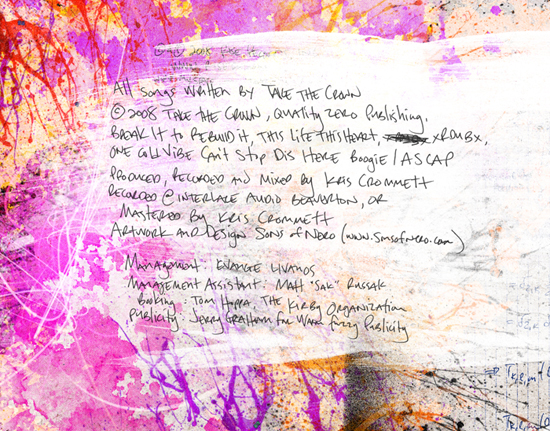 All songs written by Take The Crown
© 2008 Take The Crown, Quality Zero Publishing,
Break It to Rebuild it, This Life This Heart, xRDMBx,
One Cold Vibe Can't Stop Dis Here Boogie / ASCAP
Produced, Recorded and Mixed by Kris Crommett
Recorded @ Interlace Audio Beaverton, OR
Mastered by Kris Crommett
Artwork and Design Sons of Nero (www.sonsofnero.com)
Management: Evange Livanos
Management Assistant: Matt "Sak" Russak
Booking: Tom Hoppa, The Kirby Organization
Publicity: Jerry Graham for Warm Fuzzy Publicity